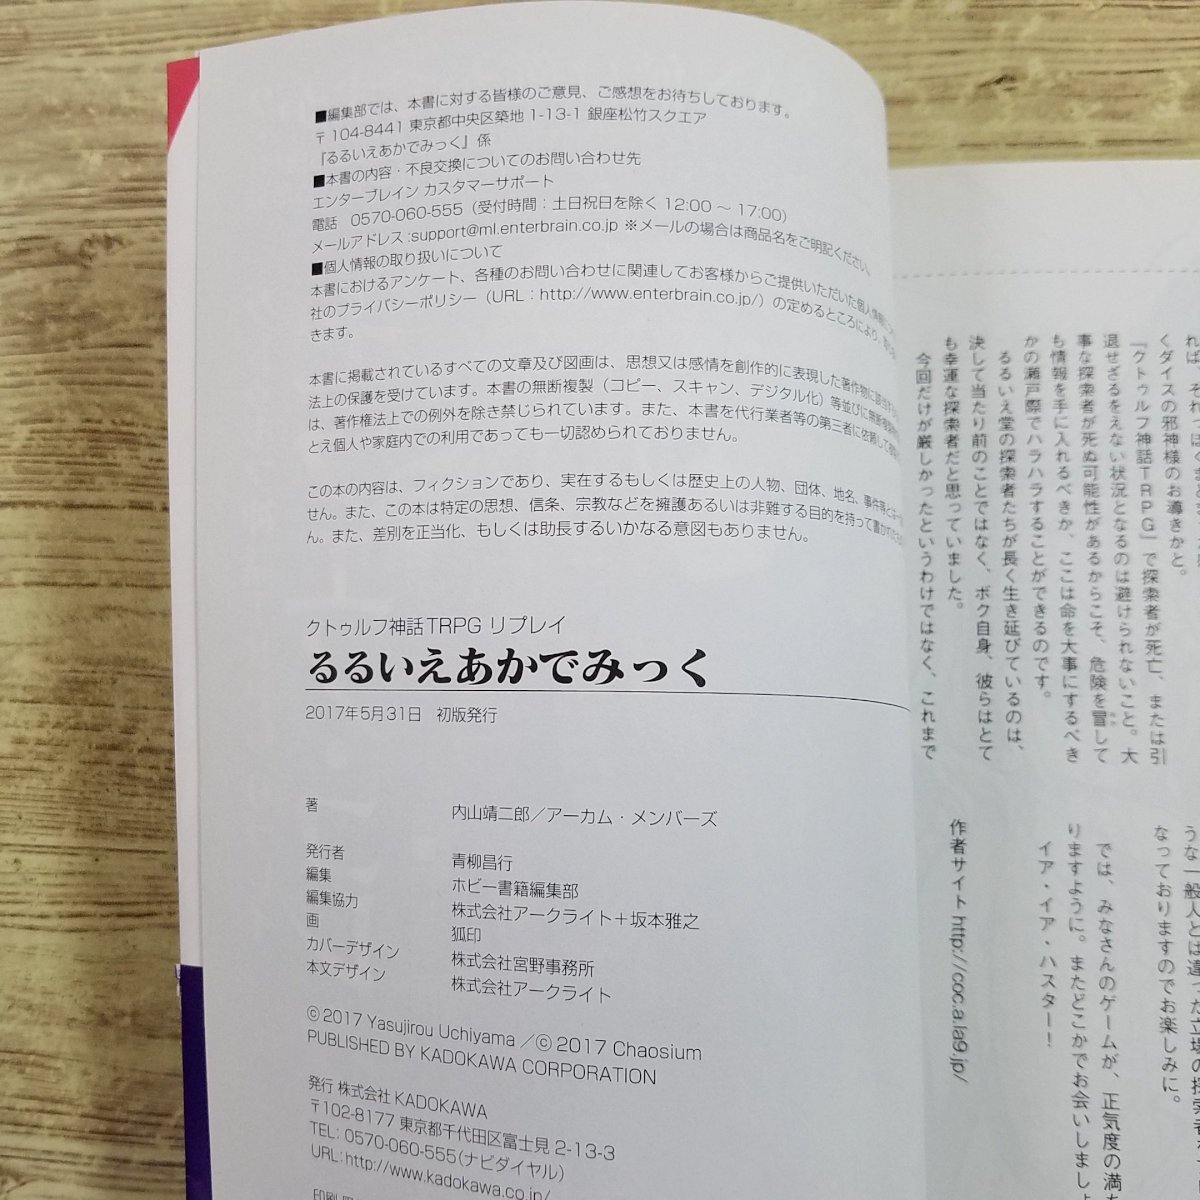 ■編集部では、本書に対する皆様のご意見、ご感想をお待ちしております。
〒 104-8441 東京都中央区築地 1-13-1 銀座松竹スクエア
『るるいえあかでみっく』係
■本書の内容・不良交換についてのお問い合わせ先
エンターブレイン カスタマーサポート
電話　0570-060-555（受付時間：土日祝日を除く 12:00 ～ 17:00）
メールアドレス:support@ml.enterbrain.co.jp ※メールの場合は商品名をご明記ください。
■個人情報の取り扱いについて
本書におけるアンケート、各種のお問い合わせに関連してお客様からご提供いただいた個人情報
社のプライバシーポリシー（URL：http://www.enterbrain.co.jp/）の定めるところにより、
きます。
本書に掲載されているすべての文章及び図画は、思想又は感情を創作的に表現した著作物に
法上の保護を受けています。本書の無断複製（コピー、スキャン、デジタル化）等並びに無断複製
は、著作権法上での例外を除き禁じられています。また、本書を代行業者等の第三者に依頼して
とえ個人や家庭内での利用であっても一切認められておりません。
この本の内容は、フィクションであり、実在するもしくは歴史上の人物、団体、地名、事件等とは
せん。また、この本は特定の思想、信条、宗教などを擁護あるいは非難する目的を持って書かれた
ん。また、差別を正当化、もしくは助長するいかなる意図もありません。
クトゥルフ神話TRPG リプレイ
るるいえあかでみっく
2017年5月31日　初版発行
著　内山靖二郎／アーカム・メンバーズ
発行者　青柳昌行
編集　ホビー書籍編集部
編集協力　株式会社アークライト＋坂本雅之
画　狐印
カバーデザイン　株式会社宮野事務所
本文デザイン　株式会社アークライト
©2017 Yasujirou Uchiyama ／© 2017 Chaosium
PUBLISHED BY KADOKAWA CORPORATION
発行 株式会社 KADOKAWA
〒102-8177 東京都千代田区富士見 2-13-3
TEL: 0570-060-555(ナビダイヤル)
URL:http://www.kadokawa.co.jp/
くダイスの邪神様のお導きかと。
『クトゥルフ神話TRPG』で探索者が死亡、または引
退せざるをえない状況となるのは避けられないこと。大
事な探索者が死ぬ可能性があるからこそ、危険を冒して
も情報を手に入れるべきか、ここは命を大事にするべき
かの瀬戸際でハラハラすることができるのです。
るるいえ堂の探索者たちが長く生き延びているのは、
決して当たり前のことではなく、ボク自身、彼らはとて
も幸運な探索者だと思っていました。
今回だけが厳しかったというわけではなく、これまで
うな一般人とは違った立場の探索者
なっておりますのでお楽しみに。
では、みなさんのゲームが、正気度の満ち
りますように。またどこかでお会いしましょ
イア・イア・ハスター！
作者サイト http://coc.a.la9.jp/